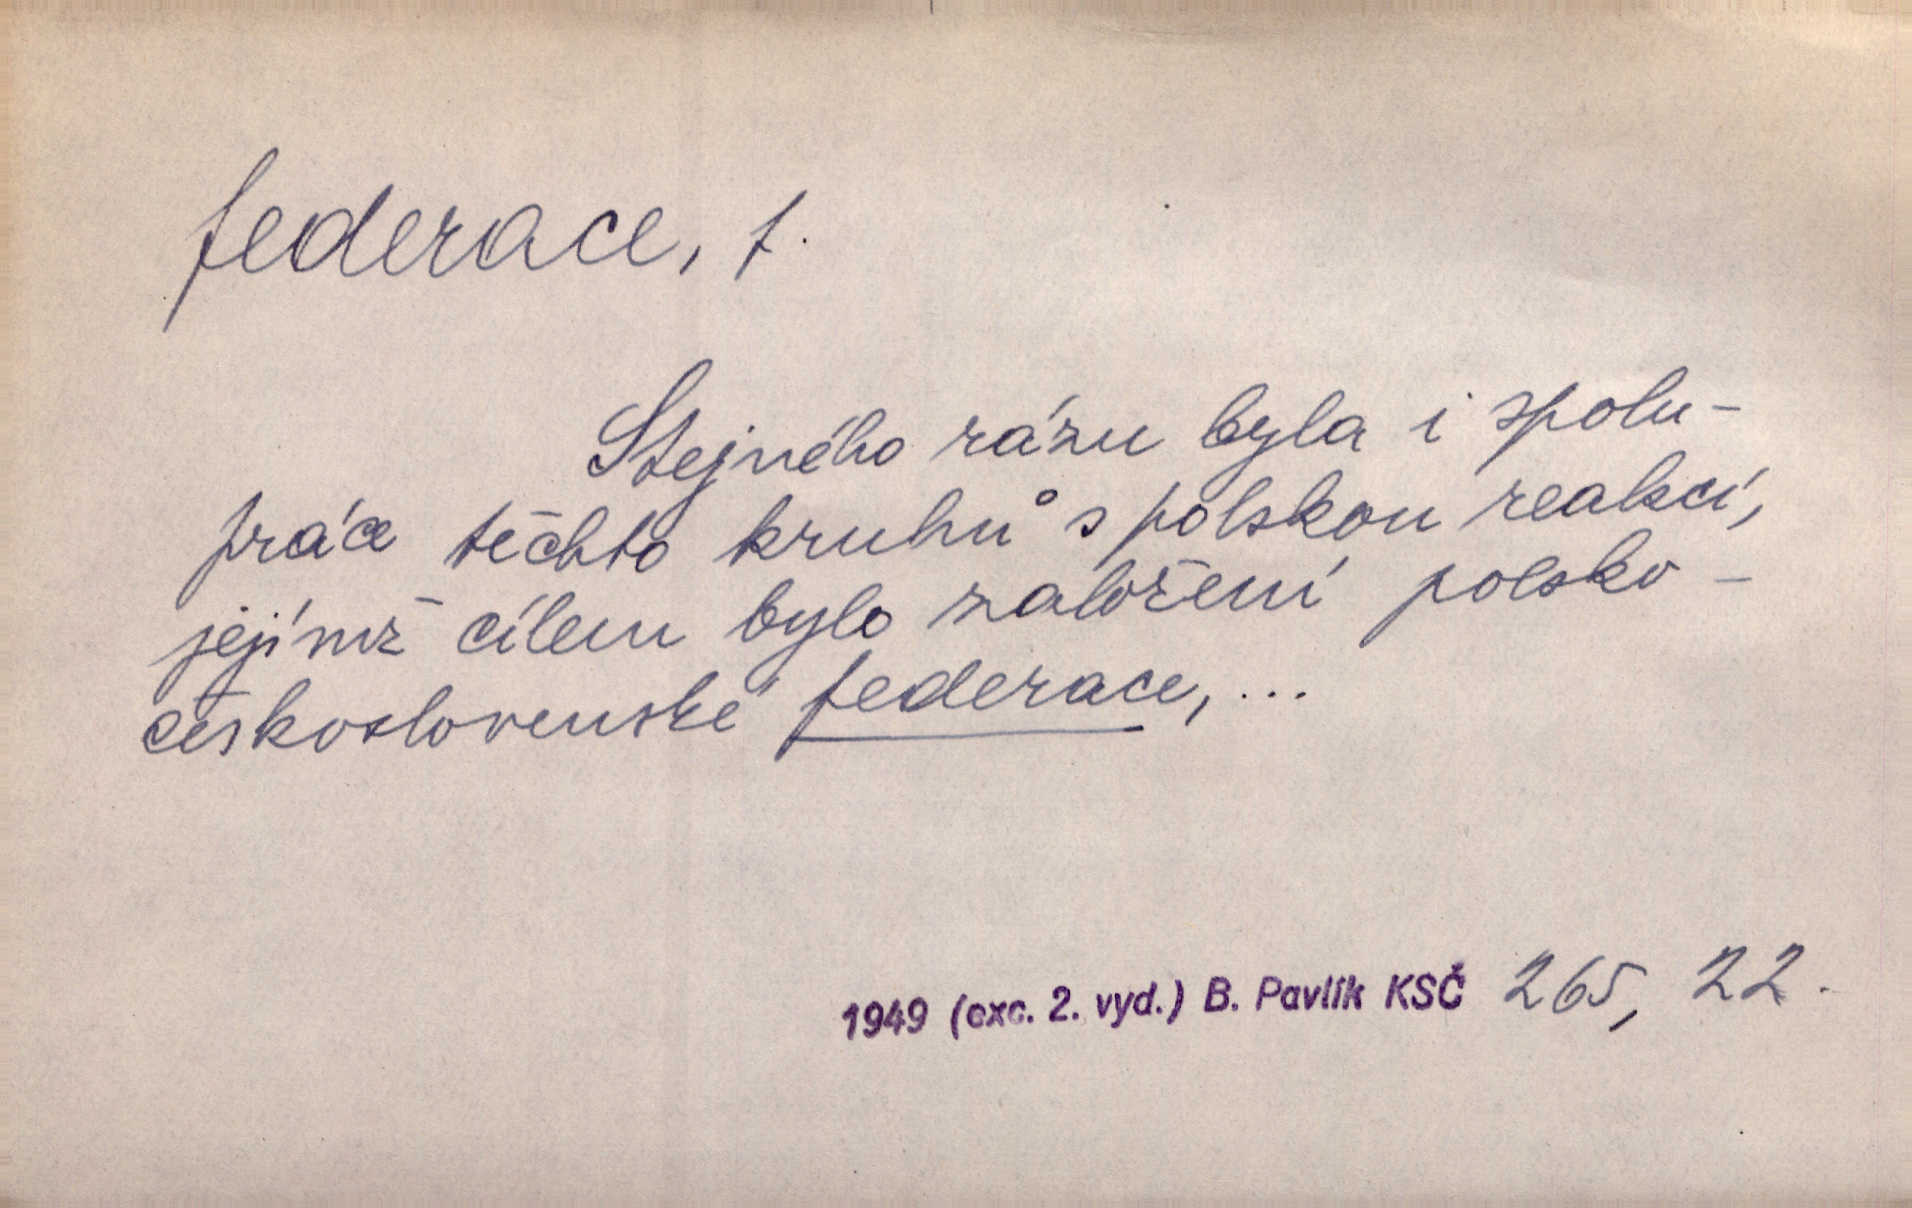 federace, f.
Stejného rázu byla i spolu-
práce těchto kruhů s polskou reakcí,
jejímž cílem bylo založení polsko-
československé federace, ...
1949 (exc. 2. vyd.) B. Pavlík KSČ 265, 22.